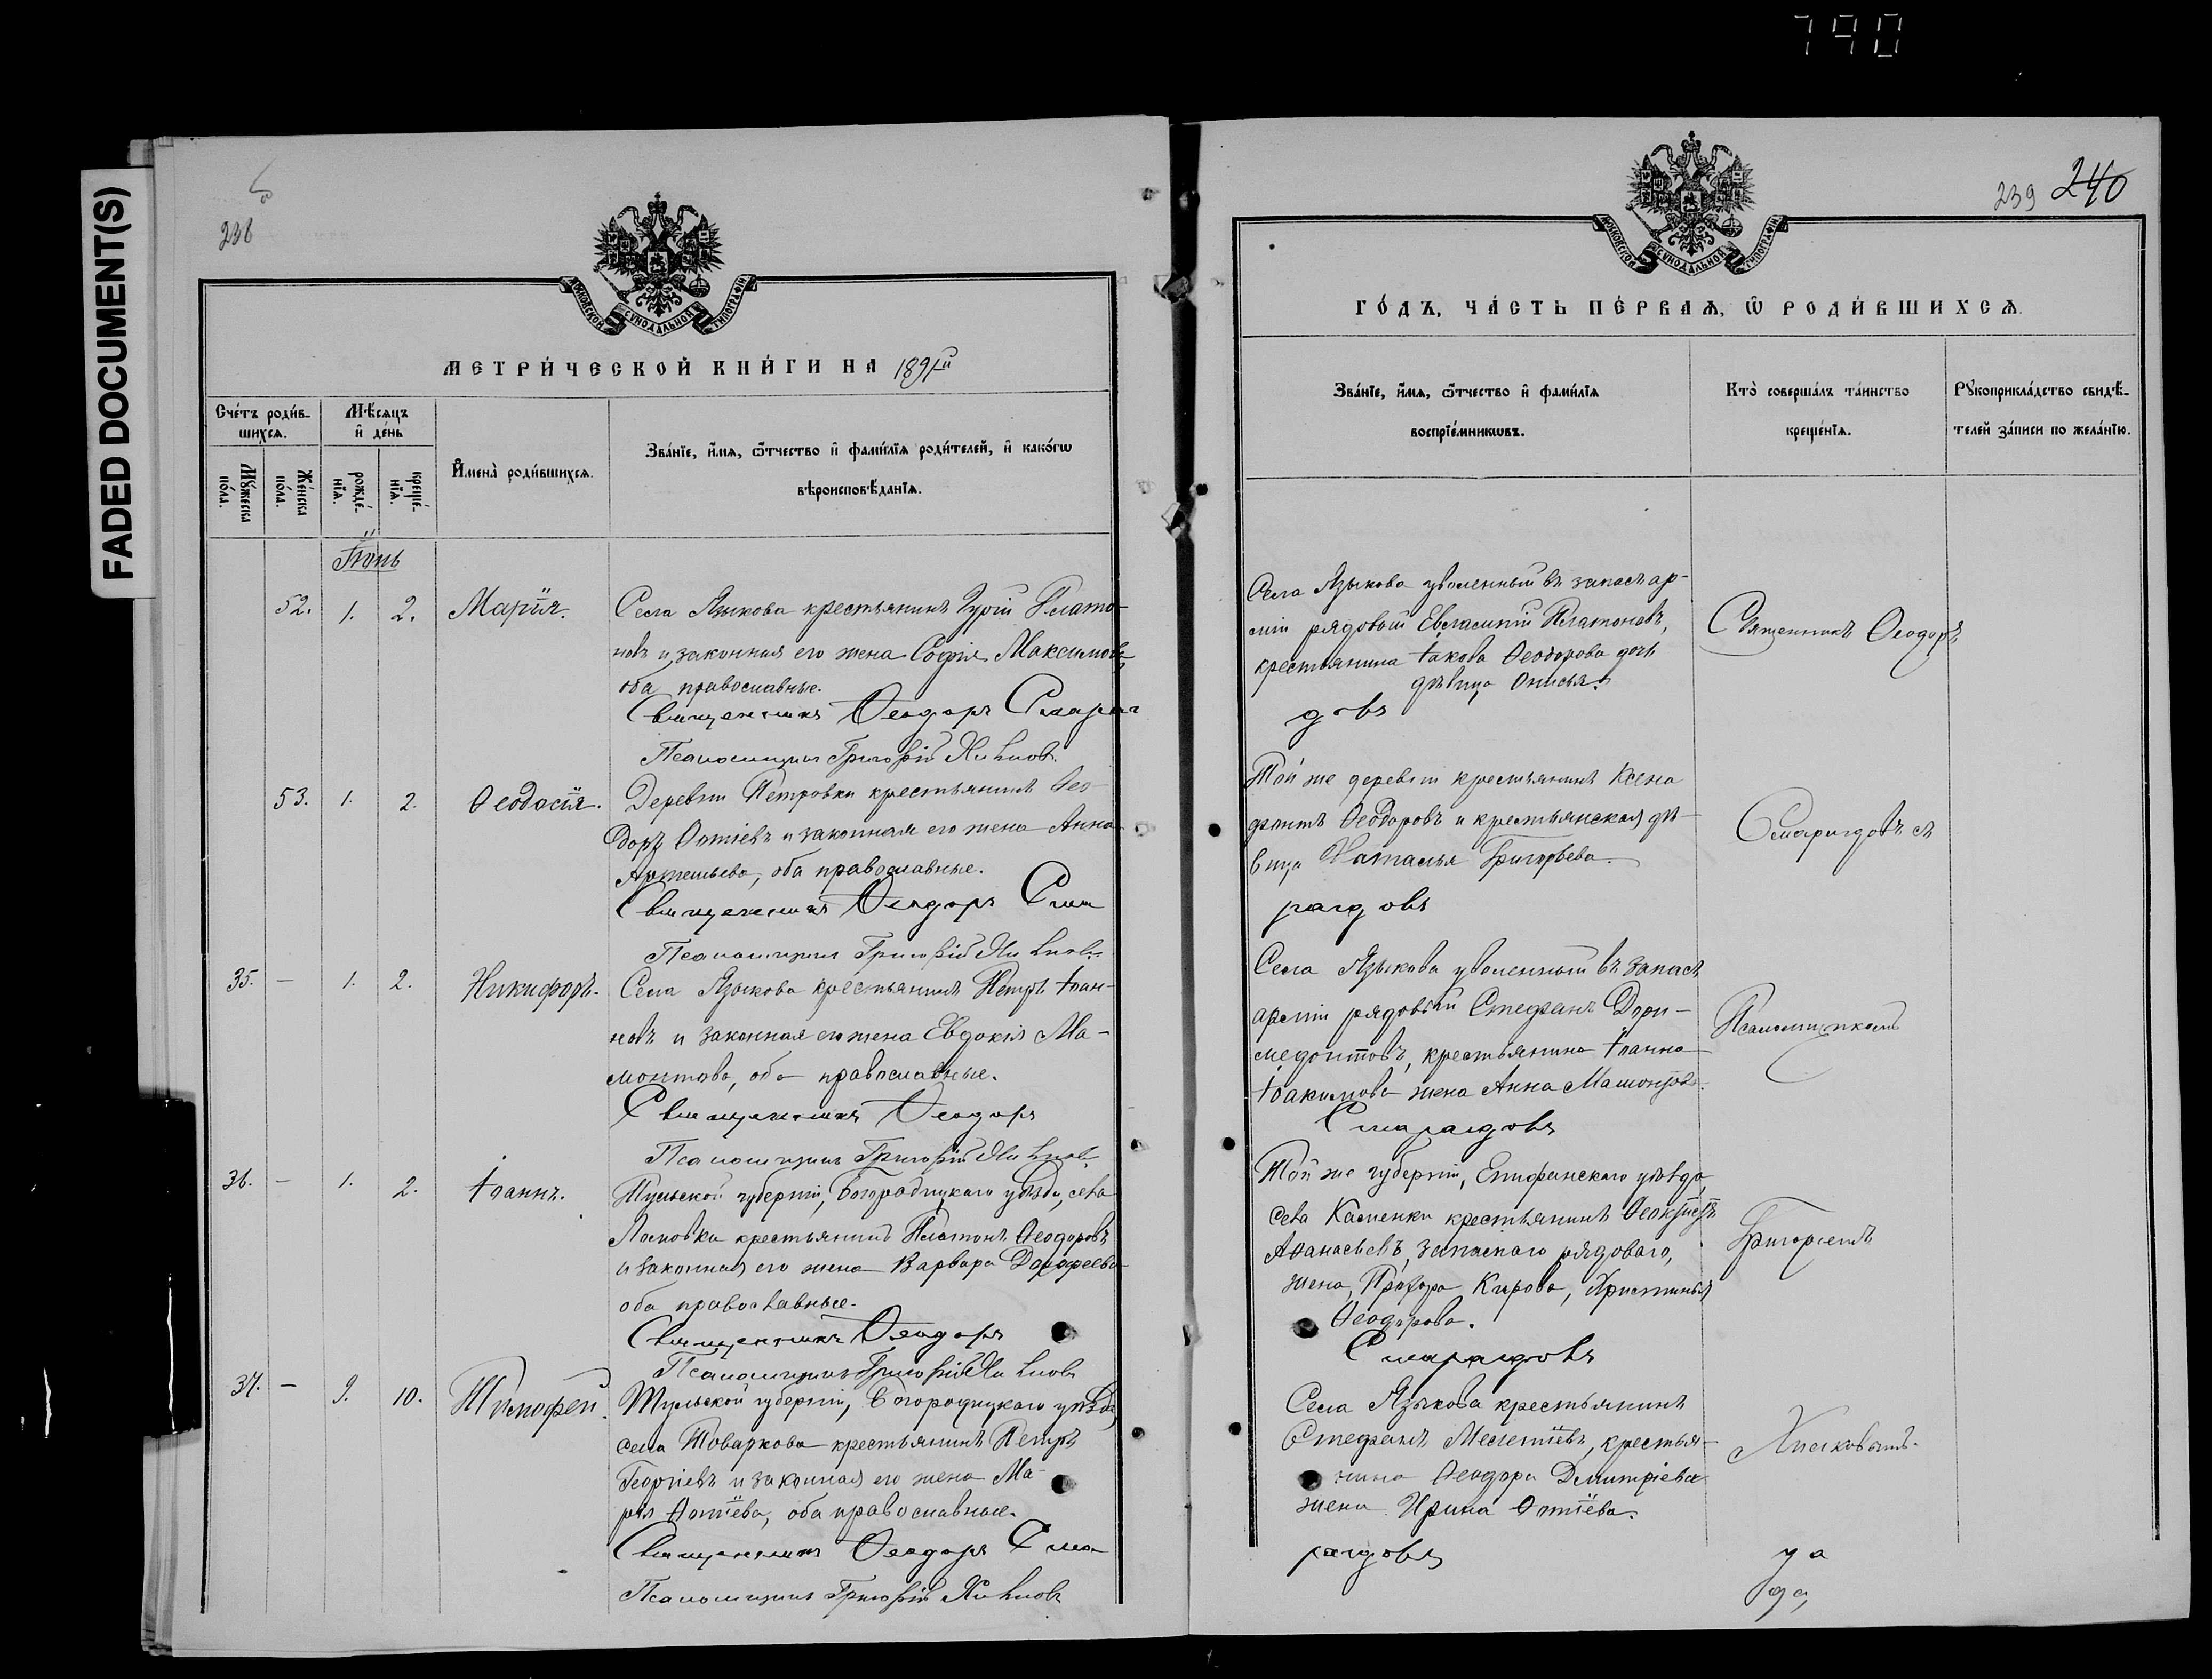 790
FADED DOCUMENT(S)
238
МОСКОВСКОЙ СУНОДАЛЬНОЙ ТИПОГРАФІИ
МЕТРИ́ЧЕСКОЙ КНИ́ГИ НА 1891й
Сче́тъ роди́в-
шихсѧ.
Мѣ́сѧцъ
и҆ де́нь
Мꙋ́жеска
по́ла.
Же́нска
по́ла.
рожде́-
нїѧ.
креще́-
нїѧ.
И҆мена̀ роди́вшихсѧ.
Зва́нїе, и҆́мѧ, ѻ҆́тчество и҆ фами́лїѧ роди́телей, и҆ како́гѡ
вѣроисповѣ́данїѧ.
Іюнь
52. 1. 2. Марія. Села Языкова крестьянинъ Гурій Плато-
новъ и законная его жена Софія Максимова
оба православные.
Священникъ Ѳеодоръ Смараг
Псаломщикъ Григорій
53. 1. 2. Ѳеодосія. Деревни Петровки крестьянинъ Ѳео-
доръ Ѳотіевъ и законная его жена Анна
Артемьева, оба православные.
Священникъ Ѳеодоръ Сма
Псаломщикъ Григорій
35. – 1. 2. Никифоръ. Села Языкова крестьянинъ Петръ Іоан-
новъ и законная его жена Евдокія Ма-
монтова, оба православные.
Священникъ Ѳеодоръ
Псаломщикъ Григорій
36. – 1. 2. Іоаннъ. Тульской губерніи, Богородицкаго уѣзда, села
крестьянинъ Платонъ Ѳеодоровъ
и законная его жена Варвара Дорофеева
оба православные.
Священникъ Ѳеодоръ
Псаломщикъ Григорій
37. – 9. 10. Тимофей. Тульской губерніи, Богородицкаго уѣзда,
села Товаркова крестьянинъ Петръ
Георгіевъ и законная его жена Ма-
рія Ѳотіева, оба православные.
Священникъ Ѳеодоръ Сма
Псаломщикъ Григорій
239 240
МОСКОВСКОЙ СУНОДАЛЬНОЙ ТИПОГРАФІИ
ГО́ДЪ, ЧА́СТЬ ПЕ́РВАѦ, Ѽ РОДИ́ВШИХСѦ.
Зва́нїе, и҆́мѧ, ѻ҆́тчество и҆ фами́лїѧ
воспрїе́мникѡвъ.
Кто̀ соверша́лъ та́инство
креще́нїѧ.
Рꙋкоприкла́дство свидѣ́-
телей за́писи по жела́нїю.
Села Языкова уволенный въ запасъ ар-
міи рядовой Евлампій Платоновъ,
крестьянина Іакова Ѳеодорова дочь
дѣвица Онисья.
довъ
Священникъ Ѳеодоръ
Той же деревни крестьянинъ Ксено
фонтъ Ѳеодоровъ и крестьянская дѣ-
вица Наталья Григорьева.
рагдовъ
Смарагдовъ съ
Села Языкова уволенный въ запасъ
арміи рядовый Стефанъ Дори-
медонтовъ, крестьянина Іоанна
Іоакимова жена Анна Мамонтова.
Смарагдовъ
Псаломщикомъ
Той же губерніи, Епифанскаго уѣзда,
села Каменки крестьянинъ Ѳеоктистъ
Аѳанасьевъ, запаснаго рядоваго,
жена, Прохора Кирова, Христинья
Ѳеодорова.
Смарагдовъ
Григоріемъ
Села Языкова крестьянинъ
Стефанъ Мелетіевъ, крестья-
нина Ѳеодора Димитріева
жена Ирина Ѳотіева.
рагдовъ